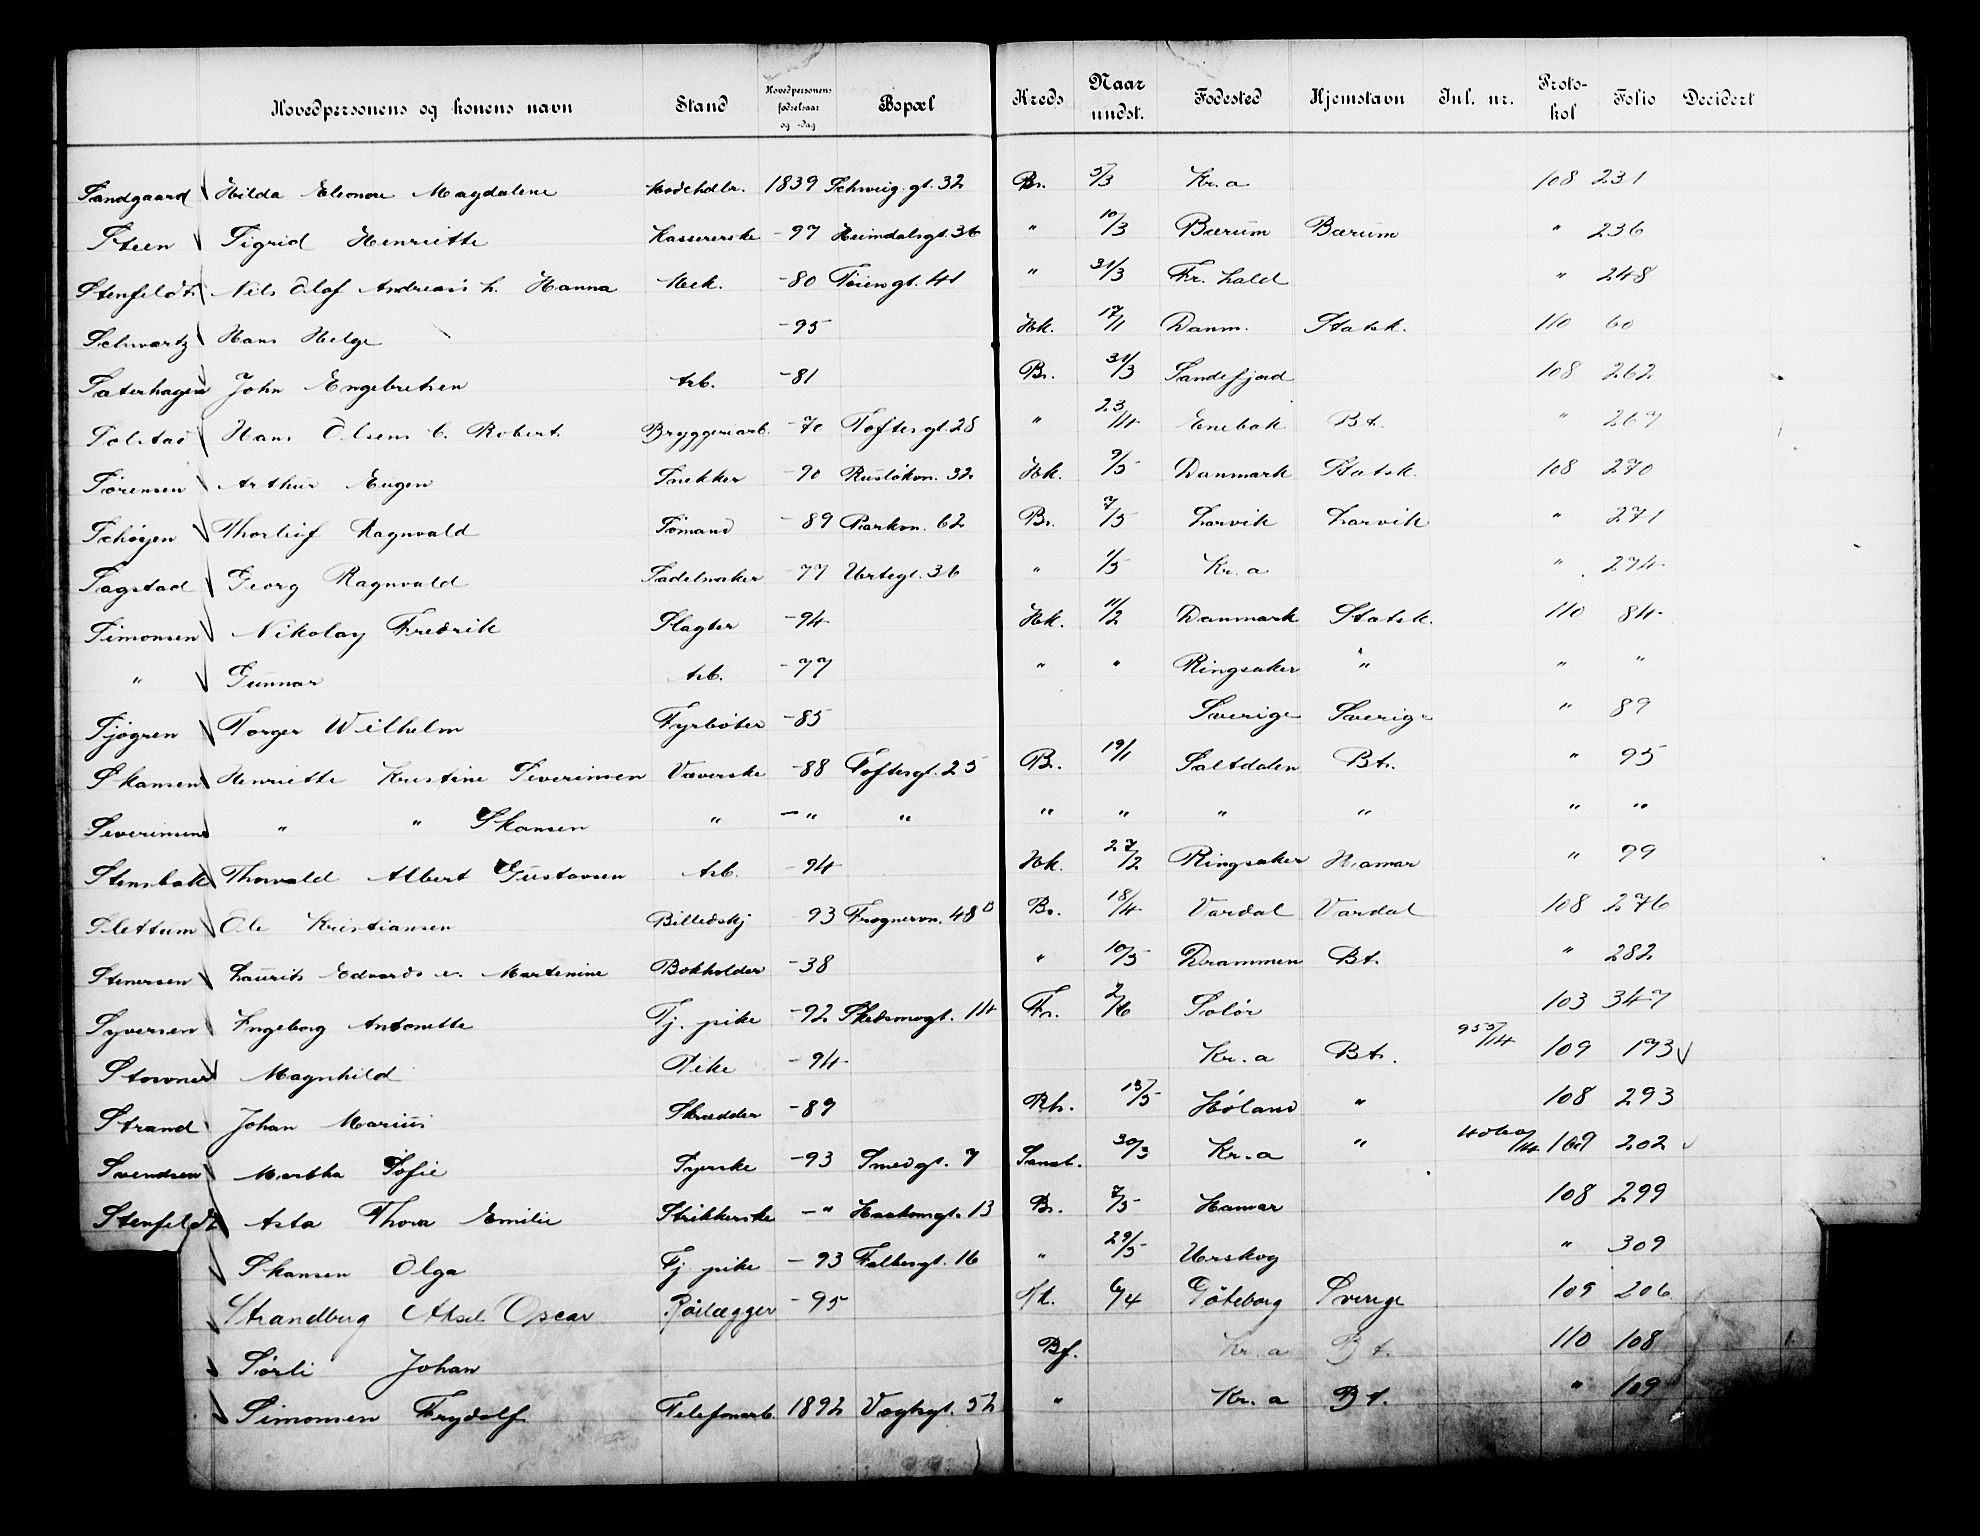 Hovedpersonens og konens navn Stand Hovedpersonens fødselsaar og -dag Bopæl Kreds Naar undst. Fødested Hjemstavn Inl. nr. Protokol Folio Decidert
Sandgaard Hilda Eleonore Magdalene 1839 Schweig. gt. 32 Br. 5/3 Kr.a 108 231
Steen Sigrid Henriette Kassererske -97 Heimdalsgt. 36 " 10/3 Bærum Bærum " 236
Stenfeldt Nils Olaf Andreas h. Hanna Mek. -80 Tøiengt. 41 " 31/3 Fr. hald " 248
Schwartz Hans Helge -95 Hk. 17/1 Danm. Statsk. 110 60
Sæterhagen John Engebretsen Arb. -81 Br. 31/3 Sandefjord 108 262
Solstad Hans Olsens b. Robert Bryggeriarb. -70 Toftesgt. 28 " 23/4 Enebak Bt. " 267
Sørensen Arthur Eugen Snekker -90 Rusløkvn. 32 Hk. 9/5 Danmark Statsk. 108 270
Schøyen Thorleif Ragnvald Sømand -89 Parkvn. 62 Br. 7/5 Larvik Larvik " 271
Sagstad Georg Ragnvald Sadelmaker -77 Urtegt. 36 " 1/5 Kr.a " 274
Simonsen Nikolay Fredrik Slagter -94 Hk. 11/2 Danmark Statsk. 110 84
" Gunnar Arb. -77 " " Ringsaker " " "
Sjøgren Torger Wilhelm Fyrbøter -85 Sverige Sverige " 89
Skansen Henriette Kristine Severinsen Væverske -88 Toftesgt. 25 Br. 19/1 Saltdalen Bt. " 95
Severinsen " " Skansen " - " " " " " " " "
Stensbak Thorvald Albert Gustavsen Arb. -94 Hk. 27/2 Ringsaker Hamar " 99
Slettum Ole Kristiansen Billedskj -93 Frognervn. 48 B Br. 18/4 Vardal Vardal 108 276
Stenersen Laurits Edvards e. Martenine Bokholder -38 " 10/5 Drammen Bt. " 282
Syversen Ingeborg Antonette Tj. pike -92 Skedsmogt. 14 Fr. 2/6 Solør 103 347
Stovner Magnhild Pike -94 Kr.a Bt. 955/14 109 193
Strand Johan Marius Skrædder -89 Rh. 15/5 Høland " 108 293
Svendsen Martha Sofie Syerske -93 Smedgt. 7 30/3 Kr.a " 109 202
Stenfeldt Asta Thora Emilie Strikkerske - " Haakonsgt. 13 Br. 7/5 Hamar 108 299
Skansen Olga Tj. pike -93 Falbesgt. 16 " 29/5 Urskog " 309
Strandberg Aksel Oscar Rørlægger -95 6/4 Göteborg Sverige 109 206
Sørli Johan Bf. Kr.a Bt. 110 108
Simonsen Frydolf Telefonarb. 1892 Vogtsgt. 52 " Kr.a Bt. " 109